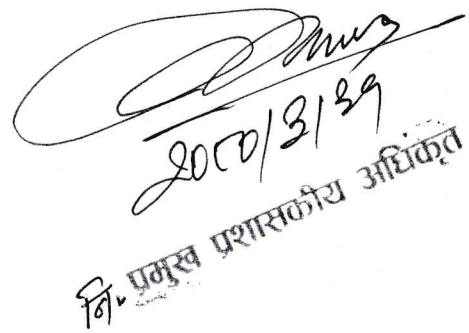 २०८०/३/३१
नि. प्रमुख प्रशासकीय अधिकृत